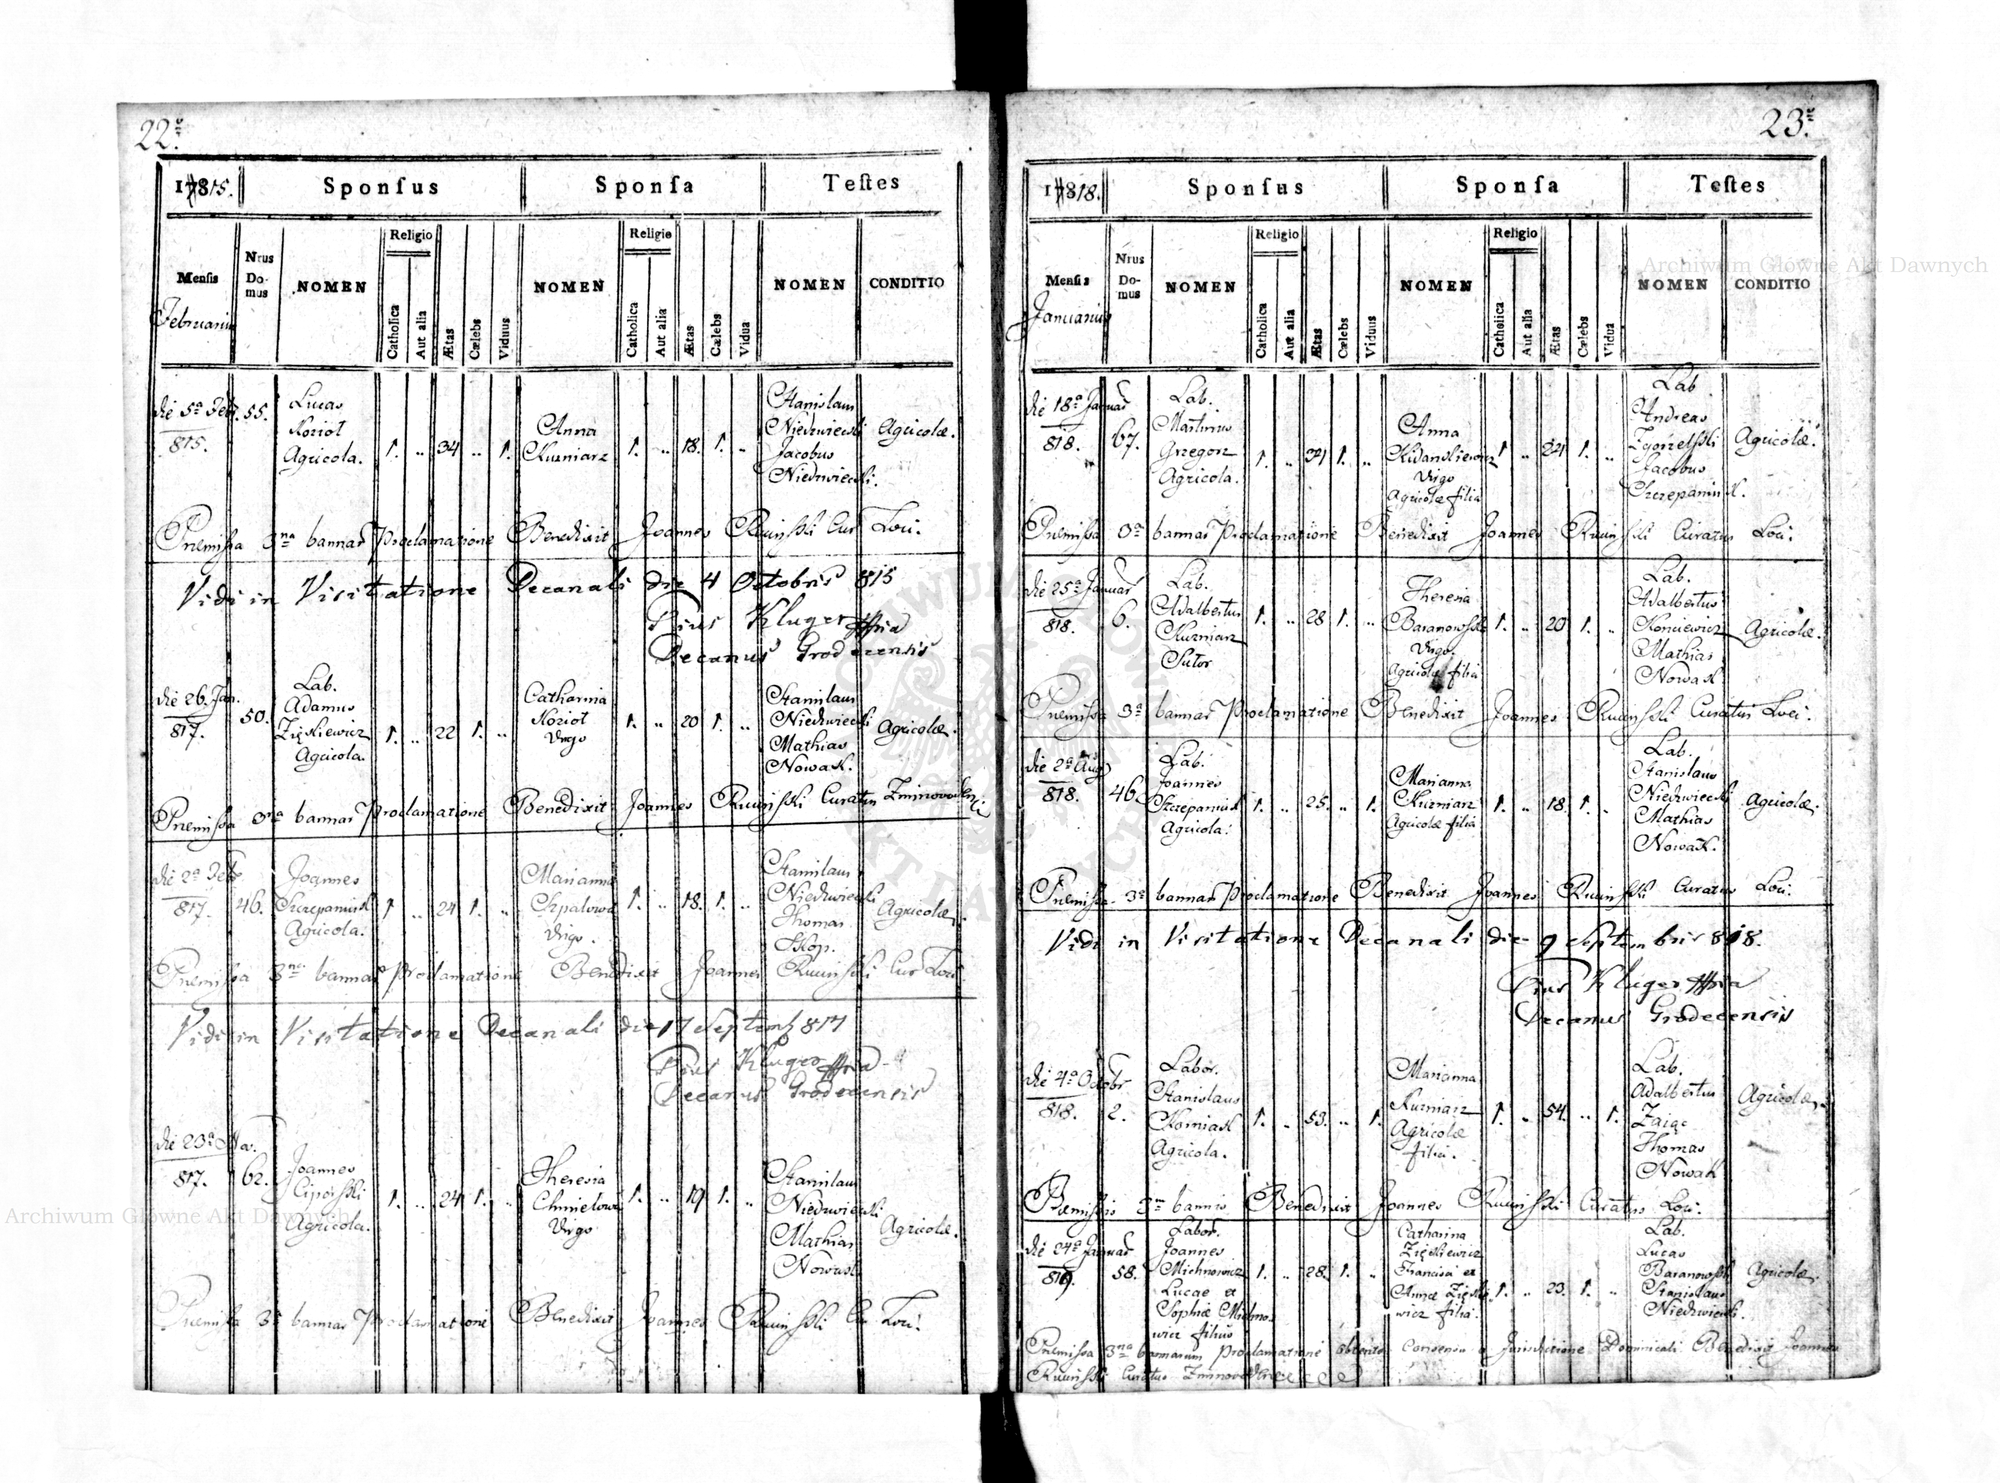 22.
17815. Sponſus Sponſa Teſtes
Religio Religio
Menſis Nrus Domus NOMEN Catholica Aut alia Ætas Cælebs Viduus NOMEN Catholica Aut alia Ætas Cælebs Vidua NOMEN CONDITIO
Februarius
die 5ª Feb. 815. 55.
Lucas
Kozioł
Agricola.
1. .. 34 .. 1.
Anna
Kuzniarz
1. .. 18. 1. ..
Stanislaus
Niedzwiecki
Jacobus
Niedzwiecki.
Agricolæ.
Præmissa 3na bannar Proclamatione Benedixit Joannes Cur Loci.
Vidi in Visitatione Decanali die 4 Octobris 815
Pius Kluger
Decanus Grodecensis
die 26. Jan. 817. 50.
Lab.
Adamus
Zięskiewicz
Agricola.
1. .. 22 1. ..
Catharina
Kozioł
Virgo
1. .. 20 1. ..
Stanislaus
Niedzwiecki
Mathias
Nowak.
Agricolæ.
Præmissa 3na bannar Proclamatione Benedixit Joannes Curatus
die 2ª Feb 817. 46.
Joannes
Szczepaniak
Agricola.
1 .. 24 1. ..
Marianna
Virgo.
1. .. 18. 1. ..
Stanislaus
Niedzwiecki
Thomas
Skop.
Agricolæ.
Præmissa 3na bannar Proclamatione Benedixit Joannes Cur Loci
Vidi in Visitatione Decanali die 17 Septemb 817
Pius Kluger
Decanus Grodecensis
die 23ª 817. 62.
Joannes
Agricola.
1. .. 24 1. ..
Theresia
Virgo
1. .. 19 1. ..
Stanislaus
Niedzwiecki
Mathias
Nowak
Agricolæ.
Præmissa 3ª bannar Proclamatione Benedixit Joannes Cur Loci.
23.
17818. Sponſus Sponſa Teſtes
Religio Religio
Menſis Nrus Domus NOMEN Catholica Aut alia Ætas Cælebs Viduus NOMEN Catholica Aut alia Ætas Cælebs Vidua NOMEN CONDITIO
Januarius
die 18ª Januar 818. 67.
Lab.
Martinus
Grzegorz
Agricola.
1. .. 1. ..
Anna
Virgo
Agricolæ filia
1 .. 1. ..
Lab
Andreas
Jacobus
Szczepaniak.
Agricolæ.
Præmissa 3ª bannar Proclamatione Benedixit Joannes Curatus Loci.
die 25ª Januar 818. 6.
Lab.
Adalbertus
Kuzniarz
Sutor
1. .. 28 1. ..
Theresia
Baranowska
Virgo.
Agricolæ filia
1. .. 20 1. ..
Lab.
Adalbertus
Mathias
Nowak
Agricolæ.
Præmissa 3ª bannar Proclamatione Benedixit Joannes Curatus Loci.
die 2ª Aug 818. 46.
Lab.
Joannes
Szczepaniak
Agricola.
1. .. 25. .. 1.
Marianna
Kuzniarz
Agricolæ filia
1. .. 18. 1. .
Lab.
Stanislaus
Niedzwiecki
Mathias
Nowak.
Agricolæ.
Præmissa 3ª bannar Proclamatione Benedixit Joannes Curatus Loci.
Vidi in Visitatione Decanali die 9 Septembris 818.
Pius Kluger
Decanus Grodecensis
die 4ª Octobr 818. 2.
Labor.
Stanislaus
Agricola.
1. .. 53. .. 1.
Marianna
Kuzniarz
Agricolæ
filia.
1. .. 54. .. 1.
Lab.
Adalbertus
Zając
Thomas
Nowak
Agricolæ.
bannis Benedixit Joannes Curatus Loci.
die 24ª Januar 819. 58.
Labor.
Joannes
Michnowicz
Lucae et
Sophiæ Michno
wicz filius
1. .. 28. 1. ..
Catharina
Zięskiewicz
Francisci et
Annæ Zięskie
wicz filia.
1. .. 23. 1. ..
Lab.
Lucas
Baranowski
Stanislaus
Niedzwiecki.
Agricolæ.
Præmissa 3na bannorum Proclamatione obtento Consensu a Jurisdictione Dominicali Benedixit Joannes
Curatus
Archiwum Główne Akt Dawnych
Archiwum Główne Akt Dawnych
ARCHIWUM GŁÓWNE AKT DAWNYCH